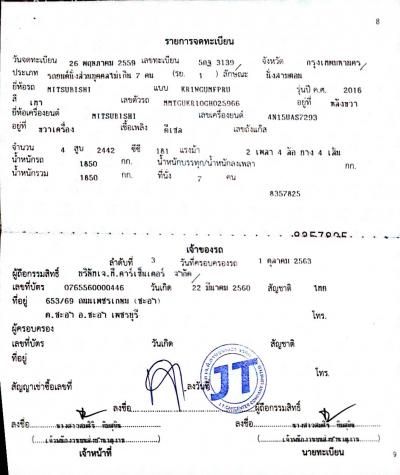 8
รายการจดทะเบียน
วันจดทะเบียน 26 พฤษภาคม 2559 เลขทะเบียน 5กว 3139 จังหวัด กรุงเทพมหานคร
ประเภท รถยนต์นั่งส่วนบุคคลไม่เกิน 7 คน (รย. 1 ) ลักษณะ นั่งสามตอน
ยี่ห้อรถ MITSUBISHI แบบ KR1WGUMFPRU รุ่นปี ค.ศ. 2016
สี เทา เลขตัวรถ MMTGUKR10GH025966 อยู่ที่
ยี่ห้อเครื่องยนต์ MITSUBISHI เลขเครื่องยนต์ 4N15UAS7293
อยู่ที่ ขวาเครื่อง เชื้อเพลิง ดีเซล เลขถังแก๊ส
จำนวน 4 สูบ 2442 ซีซี 181 แรงม้า 2 เพลา 4 ล้อ ยาง 4 เส้น
น้ำหนักรถ 1850 กก. น้ำหนักบรรทุก/น้ำหนักลงเพลา กก.
น้ำหนักรวม 1850 กก. ที่นั่ง 7 คน
8357825
8357825
เจ้าของรถ
ลำดับที่ 3 วันที่ครอบครองรถ 1 ตุลาคม 2563
ผู้ถือกรรมสิทธิ์ บริษัทเจ.ที.คาร์เซ็นเตอร์ จำกัด
เลขที่บัตร 0765560000446 วันเกิด 22 มีนาคม 2560 สัญชาติ ไทย
ที่อยู่ 653/69 ถนนเพชรเกษม (ชะอำ)
ต.ชะอำ อ.ชะอำ เพชรบุรี โทร.
ผู้ครอบครอง
เลขที่บัตร วันเกิด สัญชาติ
ที่อยู่
โทร.
สัญญาเช่าซื้อเลขที่ ลงวันที่
JT
ลงชื่อ ผู้ถือกรรมสิทธิ์
ลงชื่อ ลงชื่อ
เจ้าหน้าที่ นายทะเบียน
9